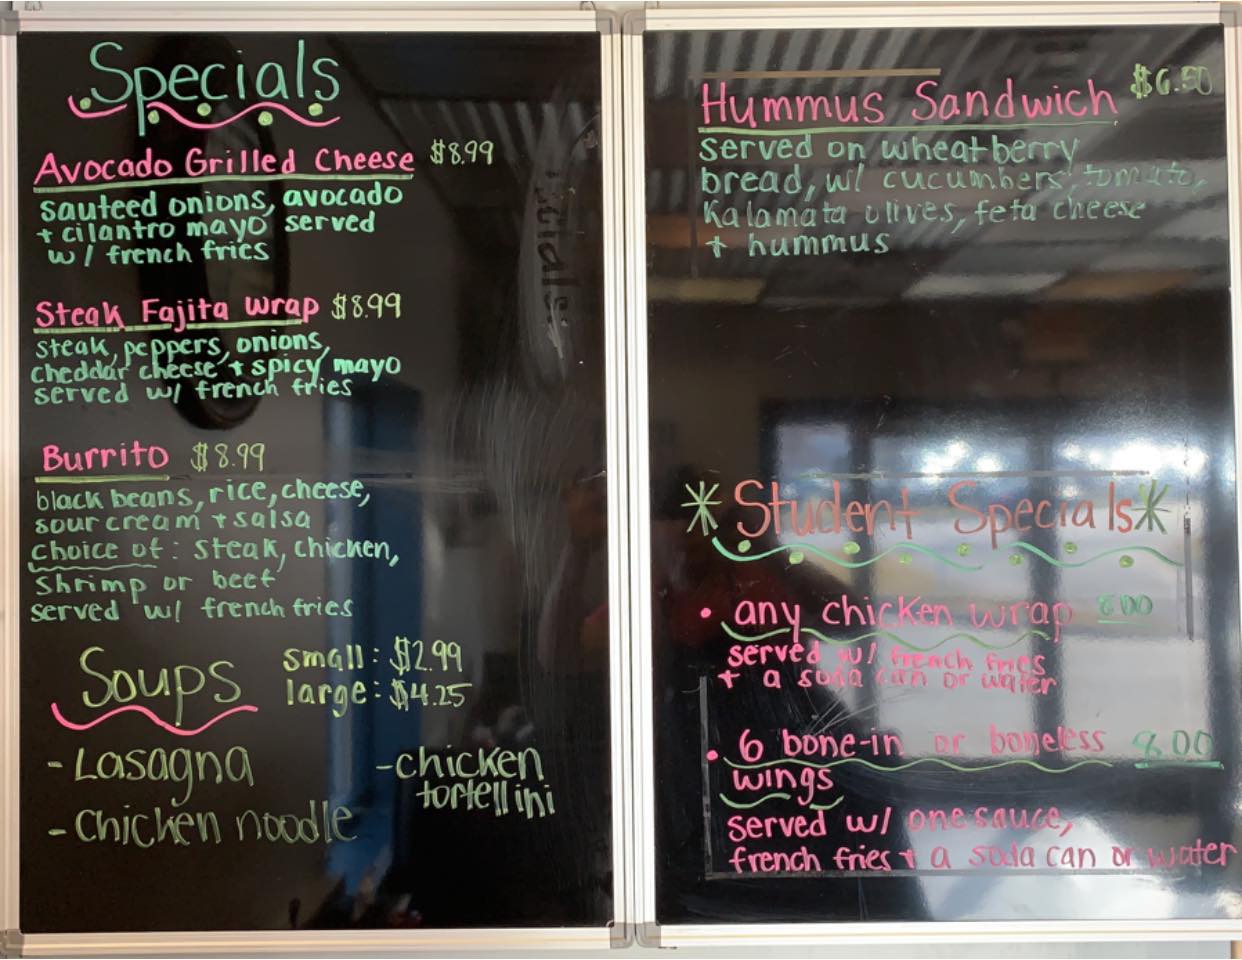 Specials
Avocado Grilled Cheese $8.99
sauteed onions, avocado
+ cilantro mayo served
w/ french fries
Steak Fajita Wrap $8.99
steak, peppers, onions,
cheddar cheese + spicy mayo
served w/ french fries
Burrito $8.99
black beans, rice, cheese,
sour cream + salsa
choice of: steak, chicken,
Shrimp or beef
served w/ french fries
Soups
small: $2.99
large: $4.25
- Lasagna
- chicken noodle
- chicken
tortellini
Hummus Sandwich $6.50
served on wheatberry
bread, w/ cucumbers, tomato,
Kalamata olives, feta cheese
+ hummus
* Student Specials *
• any chicken wrap 8.00
served w/ french fries
+ a soda can or water
• 6 bone-in or boneless 8.00
wings
served w/ one sauce,
french fries + a soda can or water